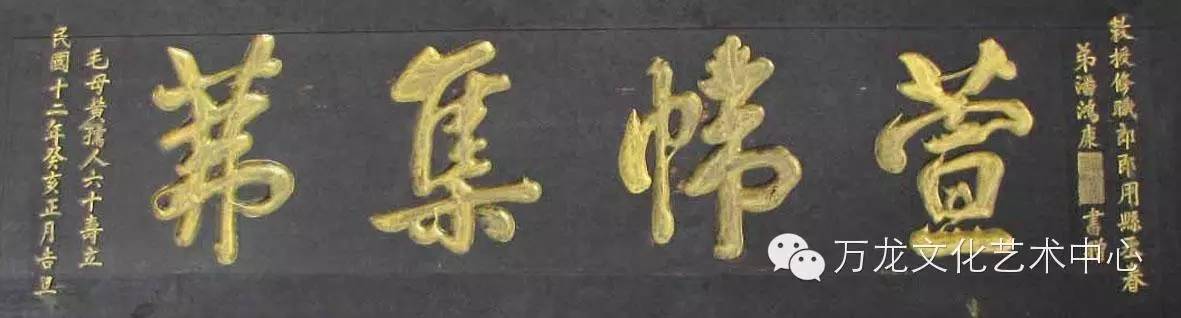 敕授修職郎即用縣丞眷
弟潘鴻康書
萱幃集茀
毛母黃孺人六十壽立
民國十二年癸亥正月吉旦
万龙文化艺术中心